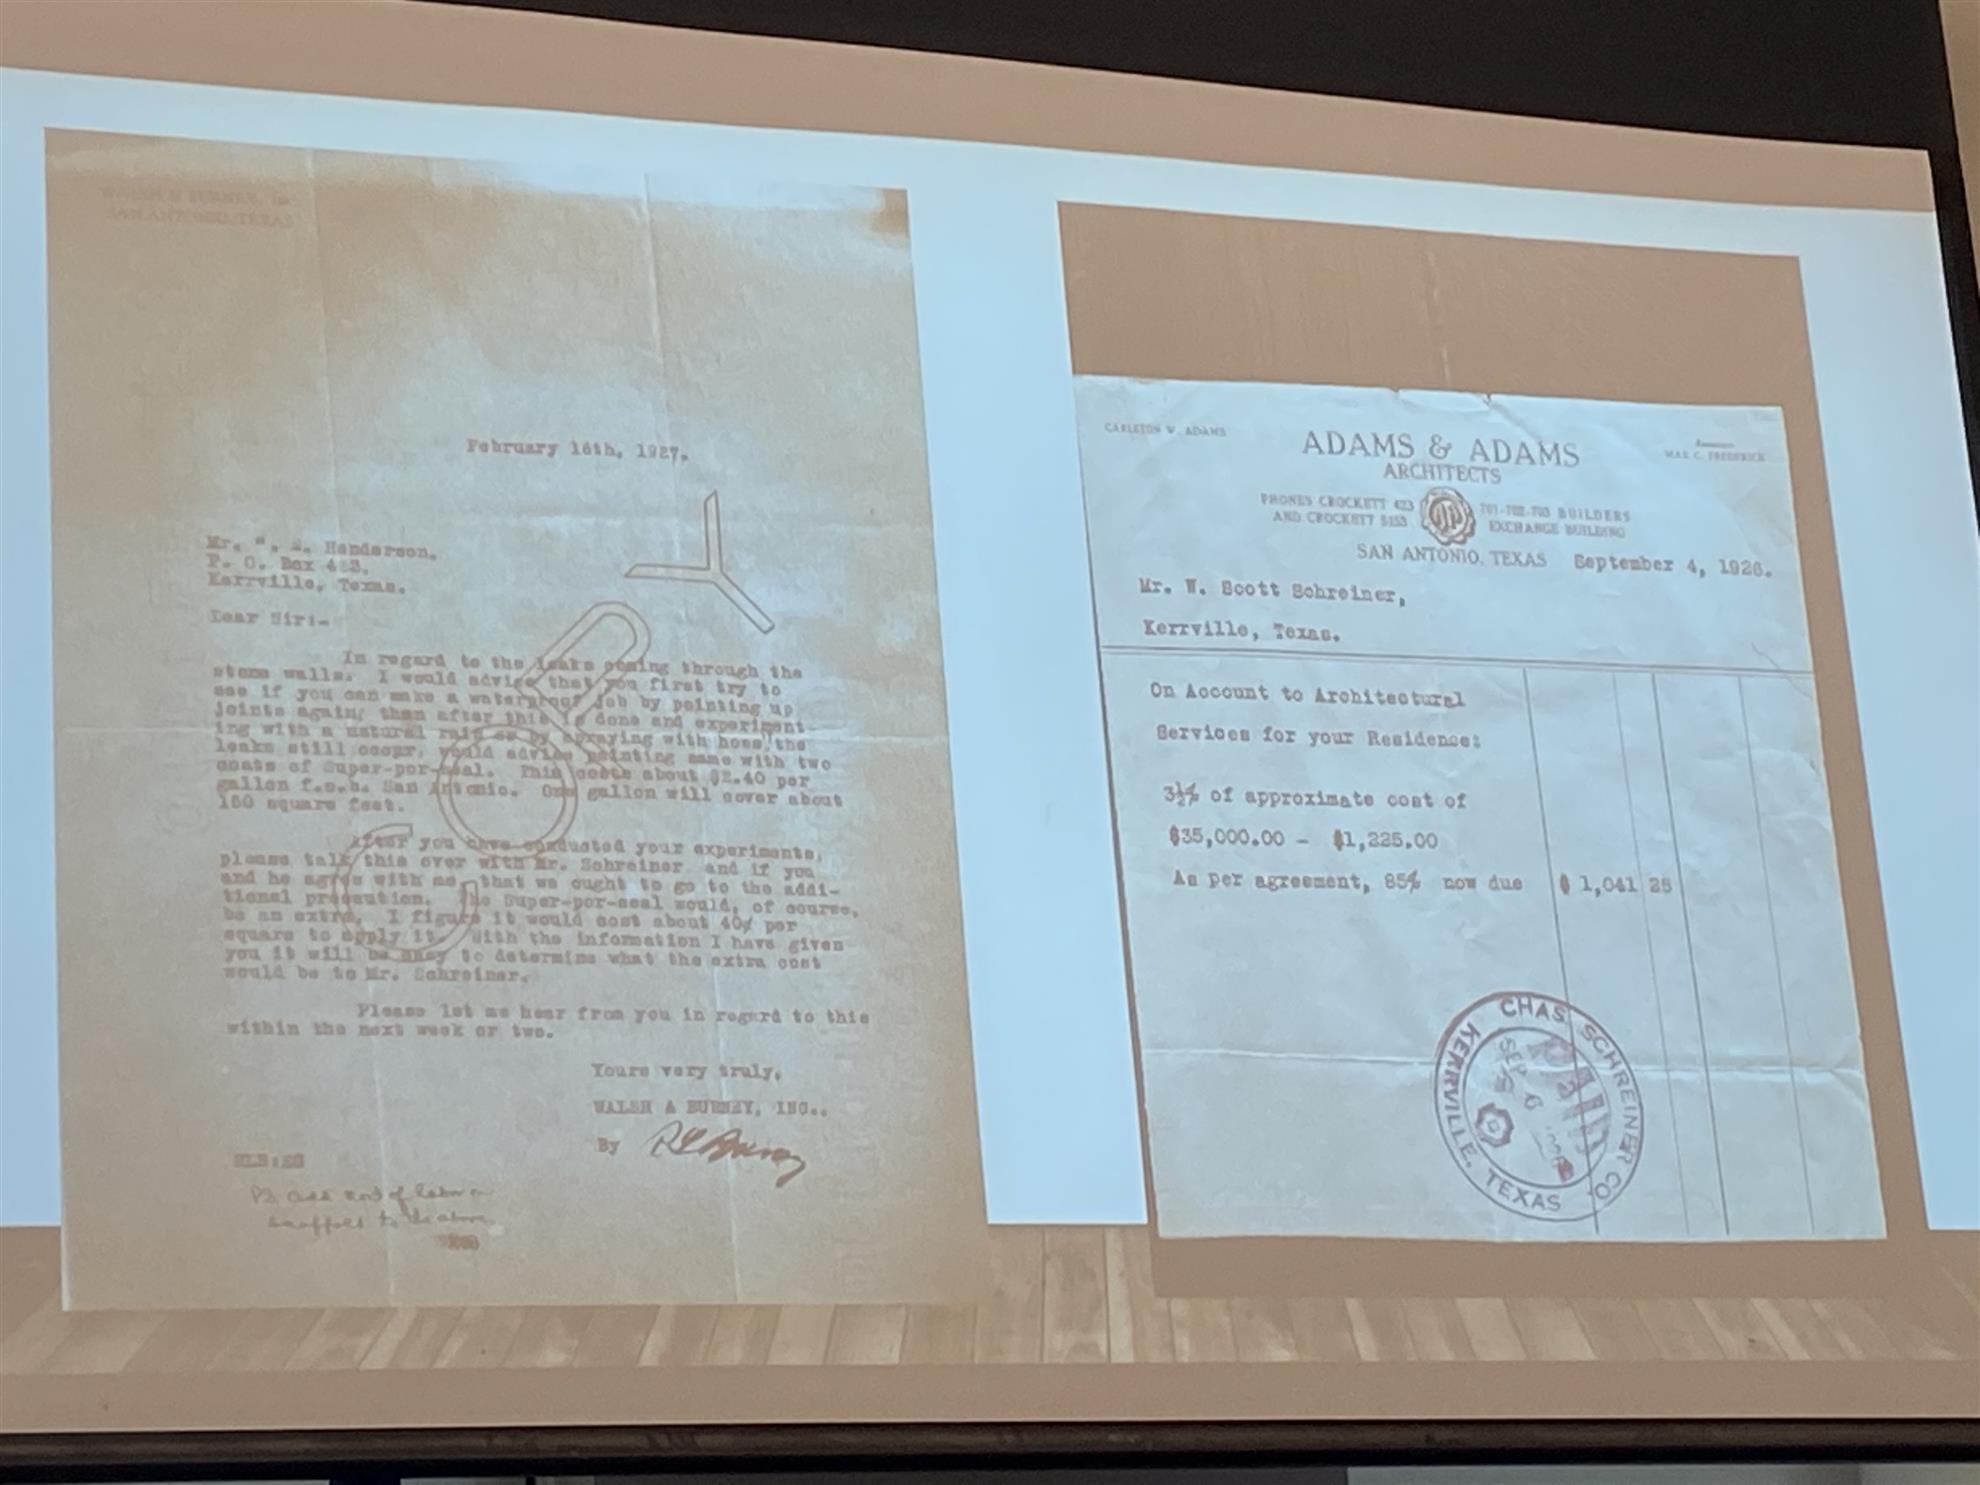 WALSH & BURNEY, Inc.
SAN ANTONIO, TEXAS
February 16th, 1927.
Mr. Henderson,
P. O. Box
Kerrville, Texas.
Dear Sir:-
In regard to the leaks coming through the
stone walls. I would advise that you first try to
see if you can make a waterproof job by pointing up
joints again; then after this is done and experiment-
ing with a natural rain or by spraying with hose, the
leaks still occur, would advise painting same with two
coats of Super-por-seal. This costs about $2.40 per
gallon f.o.b. San Antonio. One gallon will cover about
150 square feet.
After you have conducted your experiments,
please talk this over with Mr. Schreiner and if you
and he agree with me, that we ought to go to the addi-
tional precaution. The Super-por-seal would, of course,
be an extra. I figure it would cost about 40¢ per
square to apply it. With the information I have given
you it will be easy to determine what the extra cost
would be to Mr. Schreiner.
Please let me hear from you in regard to this
within the next week or two.
Yours very truly,
WALSH & BURNEY, INC.,
By
COPY
CARLETON W. ADAMS
ADAMS & ADAMS
ARCHITECTS
MAX C. FREDERICK
PHONES CROCKETT 423
AND CROCKETT 5153
701-702-703 BUILDERS
EXCHANGE BUILDING
SAN ANTONIO, TEXAS September 4, 1926.
Mr. W. Scott Schreiner,
Kerrville, Texas.
On Account to Architectural
Services for your Residence:
3½% of approximate cost of
$35,000.00 - $1,225.00
As per agreement, 85% now due $ 1,041 25
CHAS SCHREINER CO.
KERRVILLE, TEXAS
SEP 6